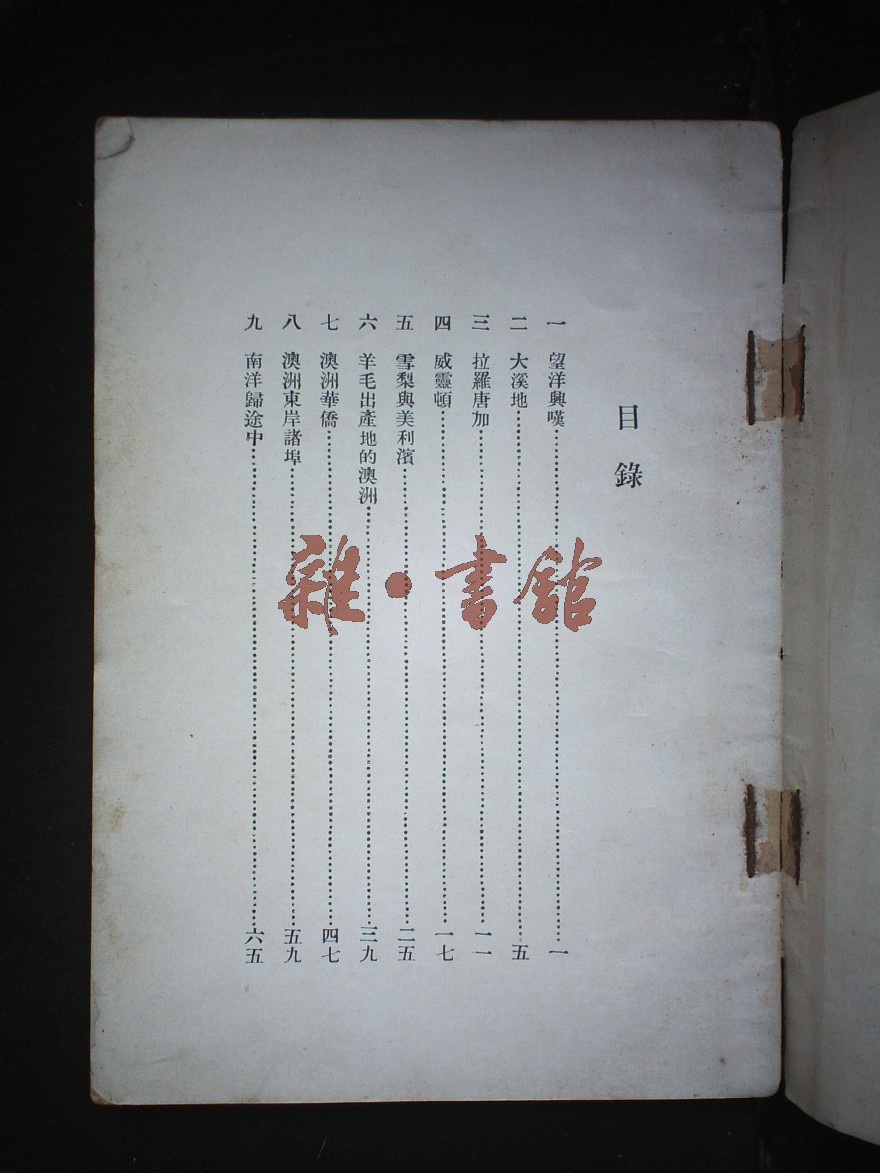 目錄
一 望洋興嘆……一
二 大溪地……五
三 拉羅唐加……一一
四 威靈頓……一七
五 雪梨與美利濱……二五
六 羊毛出產地的澳洲……三九
七 澳洲華僑……四七
八 澳洲東岸諸埠……五九
九 南洋歸途中……六五
雜·書館